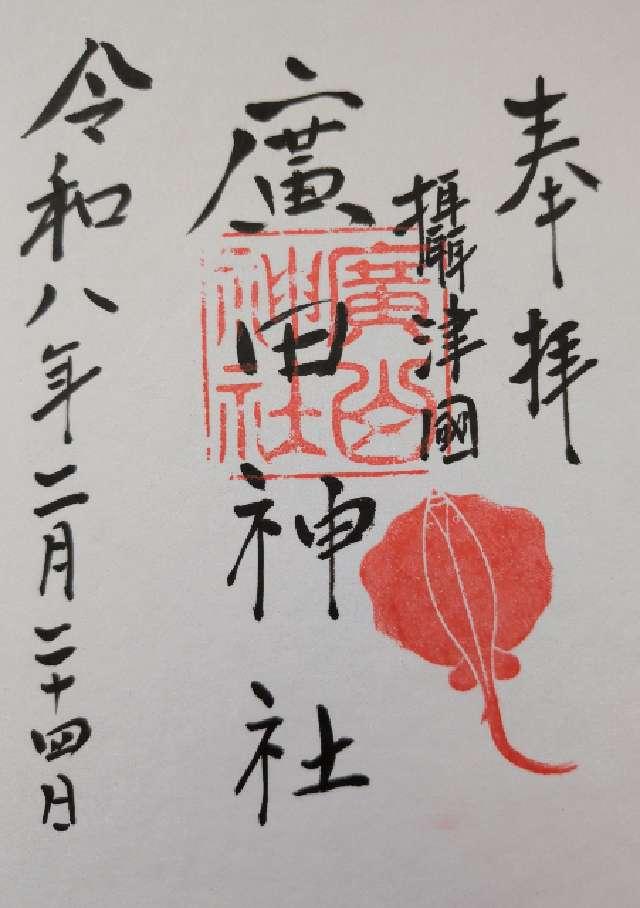 奉拝
攝津國
廣田神社
廣田神社
令和八年二月二十四日